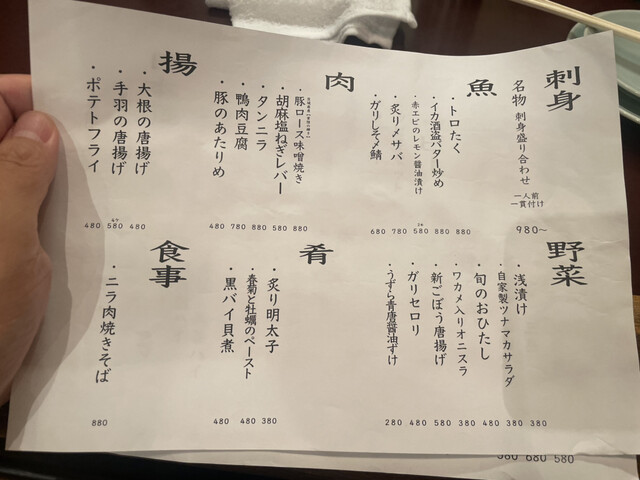 刺身
名物 刺身盛り合わせ
一人前
一貫付け
980~
魚
・トロたく
・イカ酒盗バター炒め
・赤エビのレモン醤油漬け
・炙り〆サバ
・ガリしそ〆鯖
680 780 580 880 880
肉
・豚ロース味噌焼き
・胡麻塩ねぎレバー
・タンニラ
・鴨肉豆腐
・豚のあたりめ
480 780 880 580 880
揚
・大根の唐揚げ
・手羽の唐揚げ
・ポテトフライ
480 580 480
野菜
・浅漬け
・自家製ツナマカサラダ
・旬のおひたし
・ワカメ入りオニスラ
・新ごぼう唐揚げ
・ガリセロリ
・うずら青唐醤油ずけ
280 480 580 380 480 380 380
肴
・炙り明太子
・春菊と牡蠣のペースト
・黒バイ貝煮
480 480 380
食事
・ニラ肉焼きそば
880
380 680 580